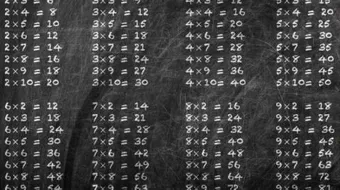 2×4 = 8 3×4 = 12 4×4 = 16 5×4 = 20
2×5 = 10 3×5 = 15 4×5 = 20 5×5 = 25
2×6 = 12 3×6 = 18 4×6 = 24 5×6 = 30
2×7 = 14 3×7 = 21 4×7 = 28 5×7 = 35
2×8 = 16 3×8 = 24 4×8 = 32 5×8 = 40
2×9 = 18 3×9 = 27 4×9 = 36 5×9 = 45
2×10 = 20 3×10 = 30 4×10 = 40 5×10 = 50
6×2 = 12 7×2 = 14 8×2 = 16 9×2 = 18
6×3 = 18 7×3 = 21 8×3 = 24 9×3 = 27
6×4 = 24 7×4 = 28 8×4 = 32 9×4 = 36
6×5 = 30 7×5 = 35 8×5 = 40 9×5 = 45
6×6 = 36 7×6 = 42 8×6 = 48 9×6 = 54
6×7 = 42 7×7 = 49 8×7 = 56 9×7 = 63
6×8 = 48 7×8 = 56 8×8 = 64 9×8 = 72
6×9 = 54 7×9 = 63 8×9 = 72 9×9 = 81